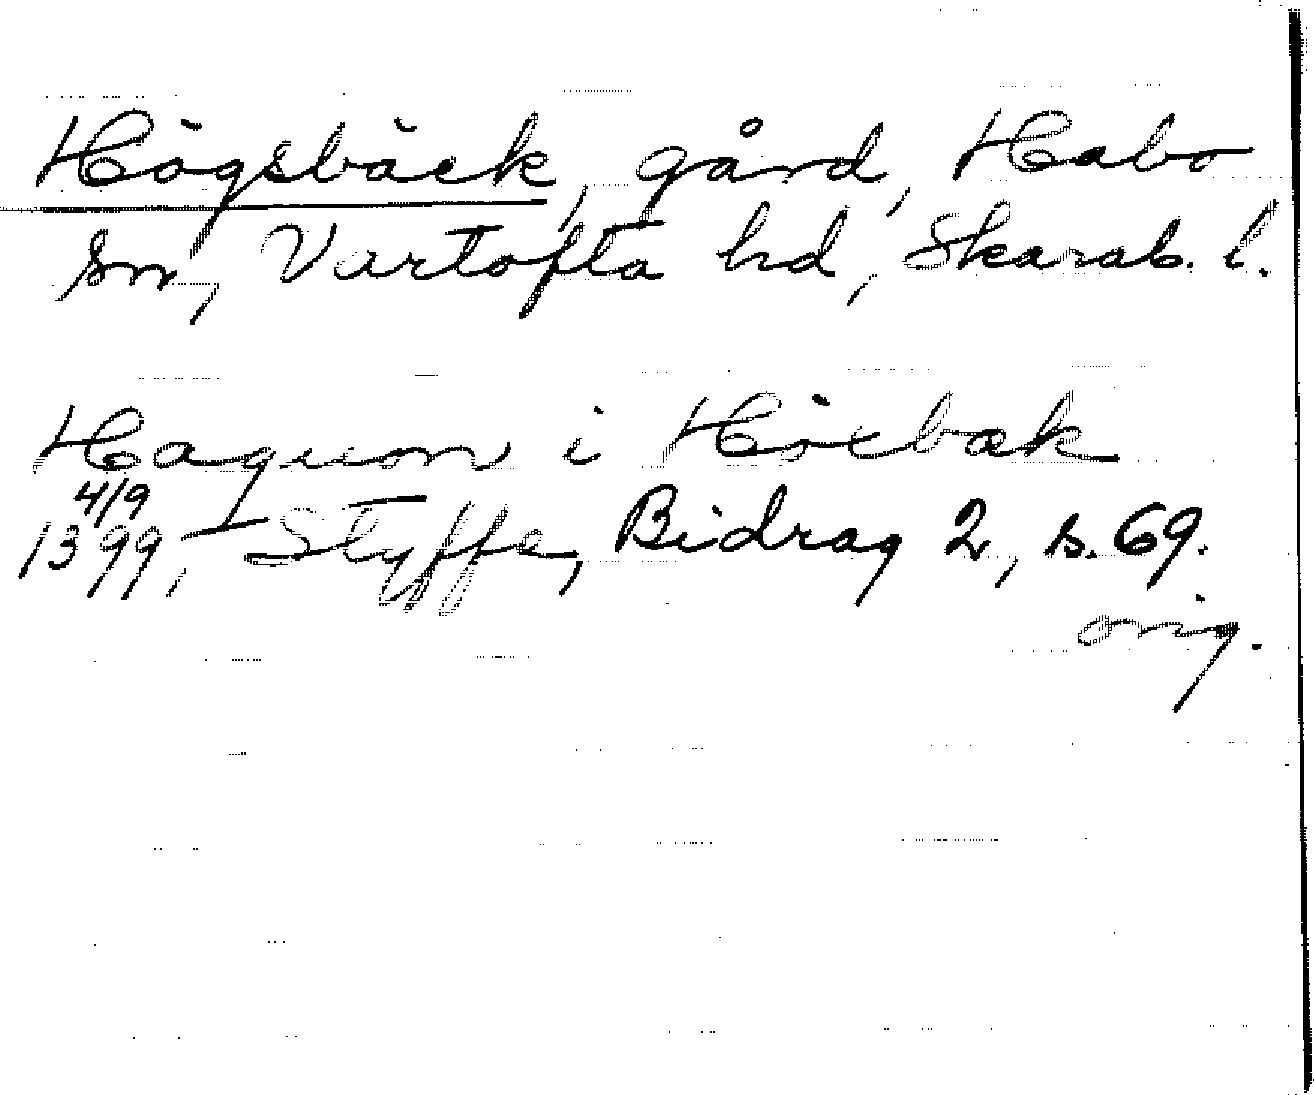 Högsbäck, gård, Habo
sn, Vartofta hd, Skarab. l.
Haquon i Höxbak
4/9
1399, Styffe, Bidrag 2, s. 69.
orig.